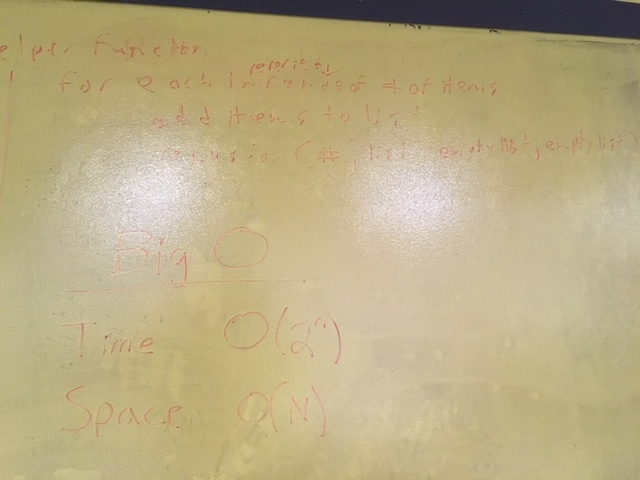 elper function
for each in range of # of items
add items to list
(#, list, empty list, empty list)
Big O
Time O(2ⁿ)
Space O(N)